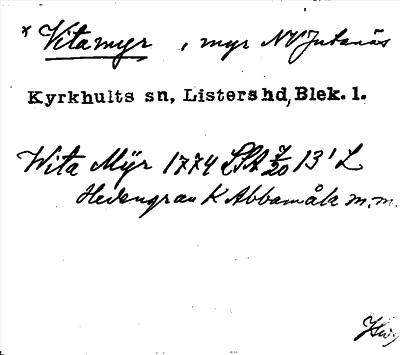 * Vitamyr, myr NV Jutanäs
Kyrkhults sn, Listers hd, Blek. l.
Wita Mÿr 1774 LSA 7/20 13' L
Hedengran K Abbamåla m.m.